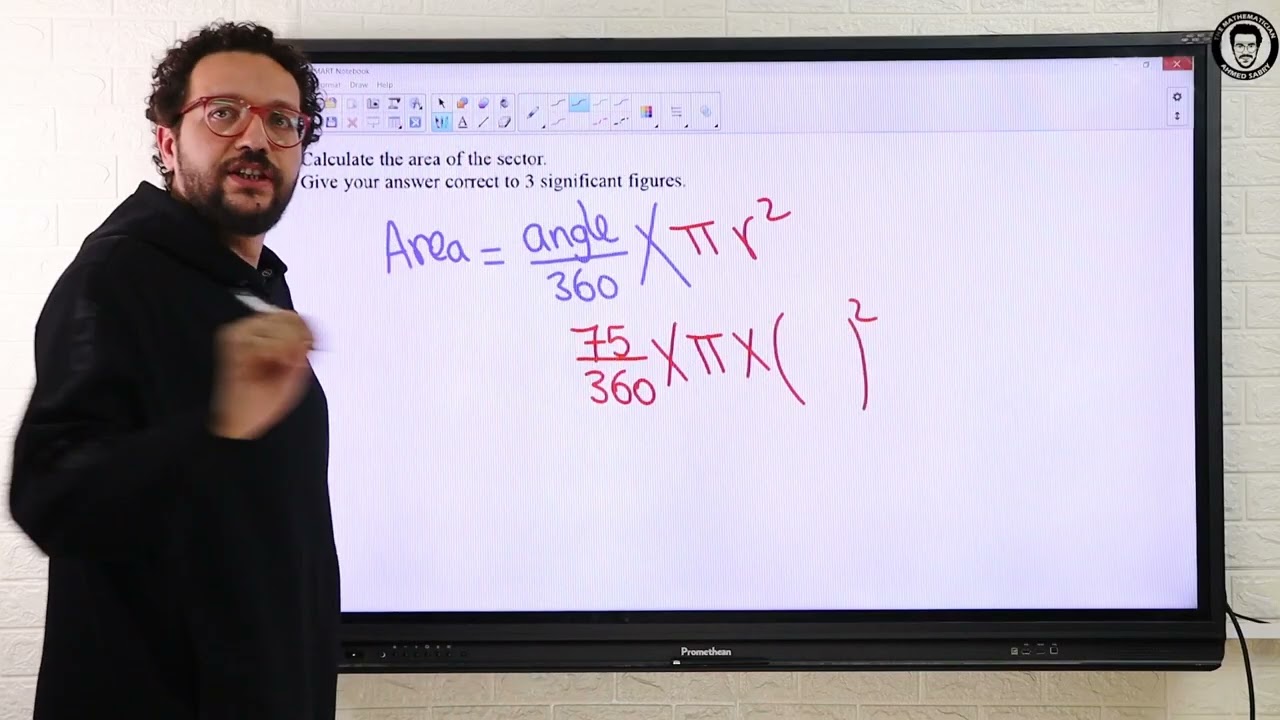 THE MATHEMATICIAN
AHMED SABRY
SMART Notebook
Format Draw Help
Calculate the area of the sector.
Give your answer correct to 3 significant figures.
Area = angle/360 X π r²
75/360 X π X ( )²
Promethean